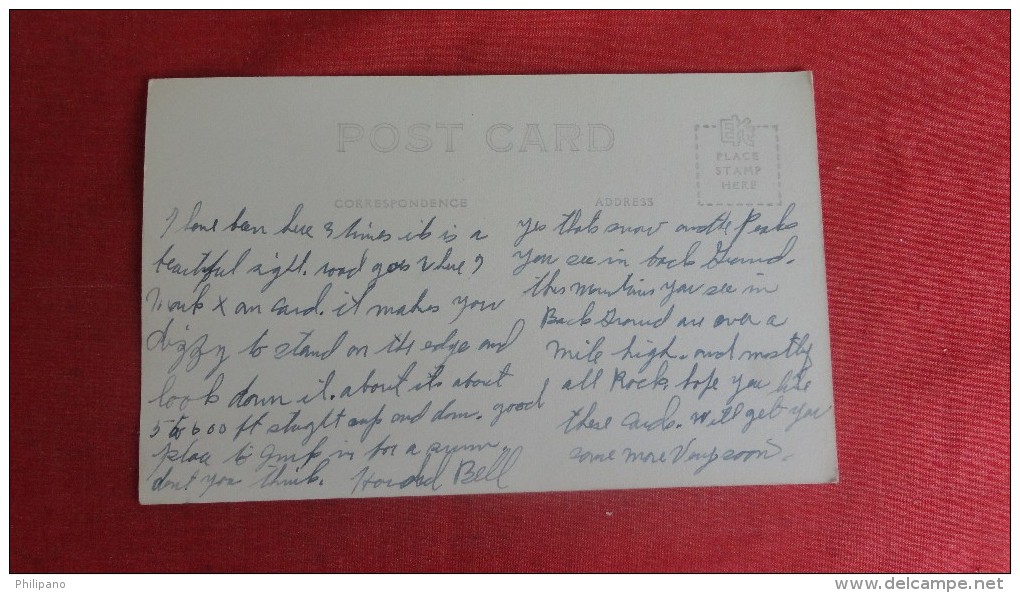 POST CARD
EKC
PLACE
STAMP
HERE
CORRESPONDENCE
ADDRESS
I have been here 3 times it is a
beautiful sight. road goes where I
mark X on card. it makes you
dizzy to stand on the edge and
look down it. about its about
5 to 600 ft straght up and down. good
place to jump in for a swim.
dont you think. Howard Bell
yes thats snow on the Peaks
you see in back Ground.
this mountins you see in
Back Ground are over a
mile high. and mostly
all Rock. hope you like
these cards. will get you
some more Very soon.
Philipano
www.delcampe.net